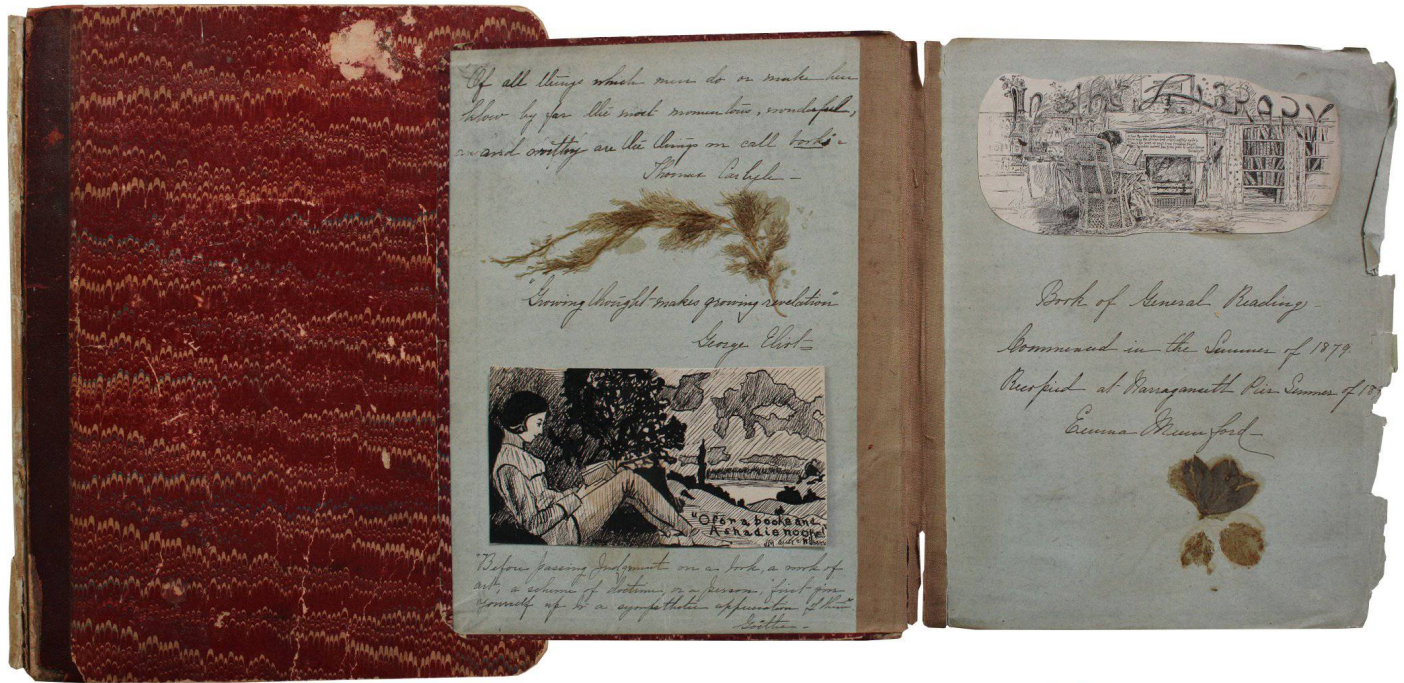 "Of all things which man do or make here
below by far the most momentous, wonderful,
and worthy are the things we call books"-
Thomas Carlyle -
"Growing thought makes growing revelation"
George Eliot -
"O for a booke and
A shadie nooke!"
"Before passing Judgment on a book, a work of
art, a scheme of doctrine, or a person, first give
yourself up to a sympathetic appreciation of him"
Goethe -
In the Library
Book of General Reading -
Commenced in the Summer of 1879.
Recopied at Narragansett Pier Summer of
Emma Mumford -